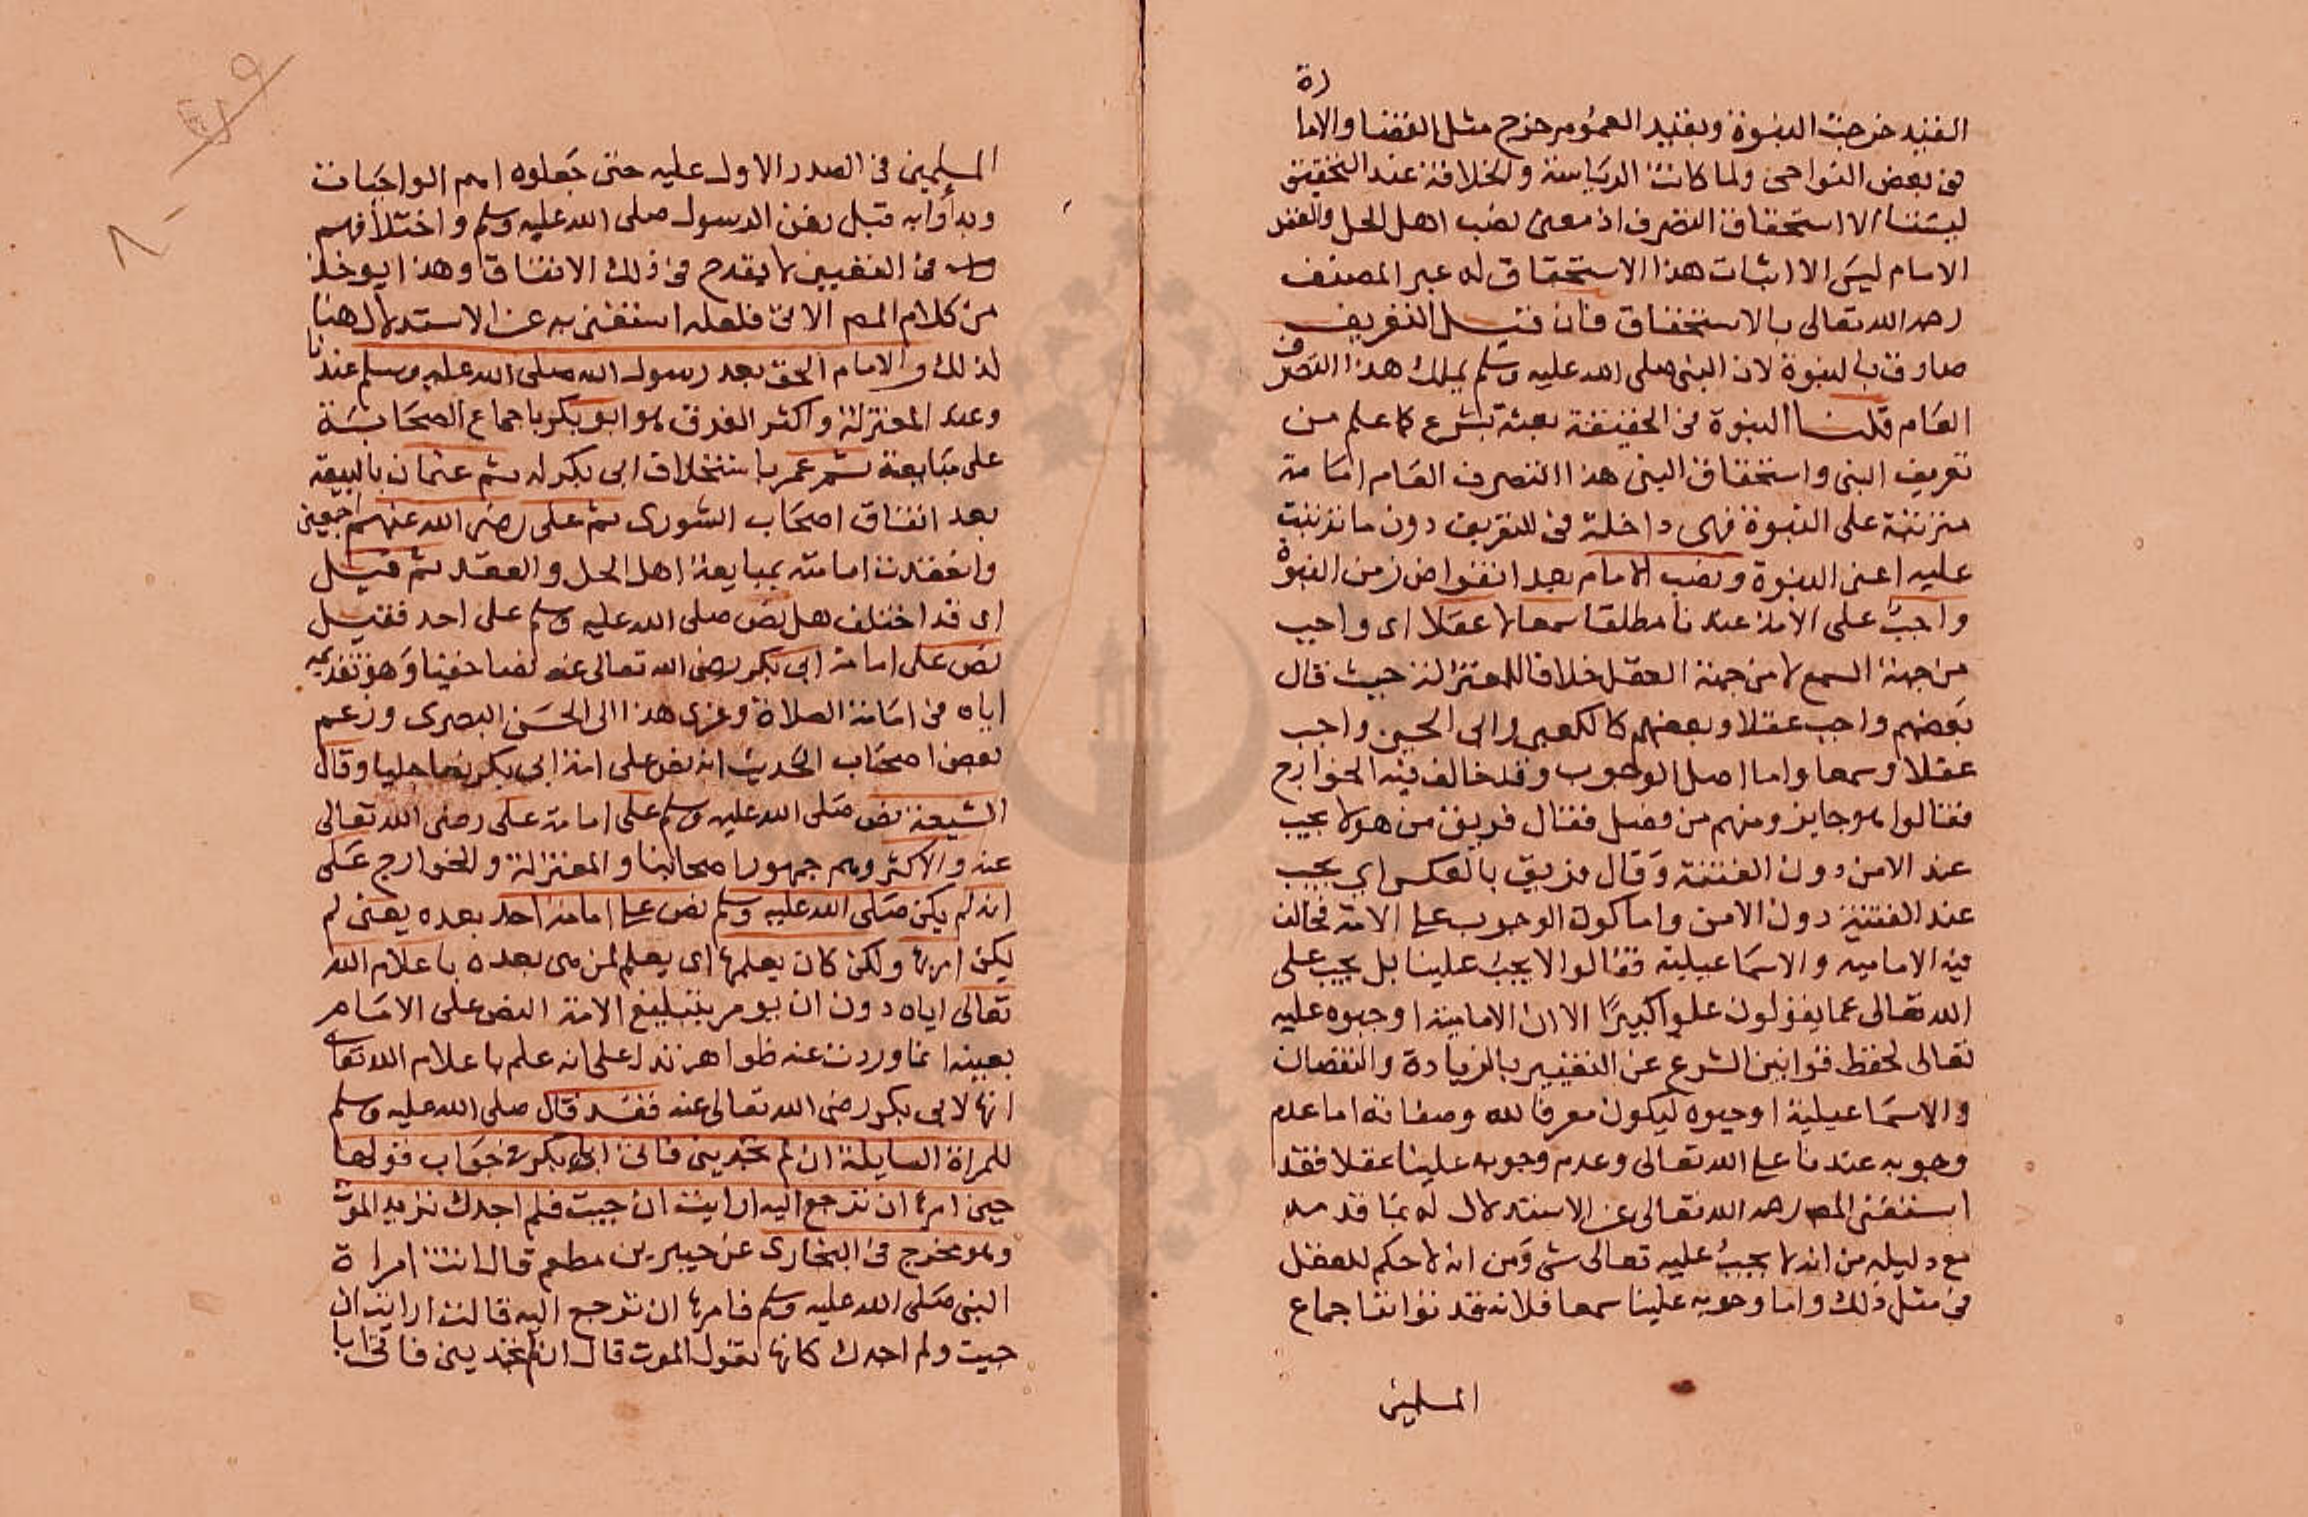 القيد خرجت النبوة وبقيد العموم خرج مثل القضا والاما
رة
في بعض النواحي ولما كانت الرياسة والخلافة عند التحقيق
ليستا الا استحقاق التصرف اذ معنى نصب اهل الحل والعقد
الامام ليس الا اثبات هذا الاستحقاق له عبر المصنف
رحمه الله تعالى بالاستحقاق فان قيل التعريف
صادق بالنبوة لان النبي صلى الله عليه وسلم يملك هذا التصرف
العام قلنا النبوة في الحقيقة بعثة بشرع كما علم من
تعريف النبي واستحقاق النبي هذا التصرف العام امامة
مترتبة على النبوة فهي داخلة في التعريف دون ما ترتبت
عليه اعني النبوة ونصب الامام بعد انقراض زمن النبوة
واجب على الامة عندنا مطلقا سمعا لا عقلا اي واجب
من جهة السمع لا من جهة العقل خلافا للمعتزلة حيث قال
بعضهم واجب عقلا وبعضهم كالكعبي وابي الحسين واجب
عقلا وسمعا واما اصل الوجوب وقد خالف فيه الخوارج
فقالوا هو جايز ومنهم من فصل فقال فريق من هولا يجب
عند الامن دون الفتنة وقال فريق بالعكس اي يجب
عند الفتنة دون الامن واما كون الوجوب على الامة فخالف
فيه الامامية والاسماعيلية فقالوا لا يجب علينا بل يجب على
الله تعالى عما يقولون علوا كبيرا الا ان الامامية اوجبوه عليه
تعالى لحفظ قوانين الشرع عن التغيير بالزيادة والنقصان
والاسماعيلية اوجبوه ليكون معرفا لله وصفاته اما عدم
وجوبه عندنا على الله تعالى وعدم وجوبه علينا عقلا فقد
استغنى المصر رحمه الله تعالى عن الاستدلال له بما قدمه
مع دليله من انه لا يجب عليه تعالى شي ومن انه لا حكم للعقل
في مثل ذلك واما وجوبه علينا سمعا فلانه قد تواتر اجماع
المسلمين
المسلمين في الصدر الاول عليه حتى جعلوه اهم الواجبات
وبدأوا به قبل دفن الرسول صلى الله عليه وسلم واختلافهم
في التعيين لا يقدح في ذلك الاتفاق وهذا يوخذ
من كلام المص الاتي فلعله استغنى به عن الاستدلال هنا
لذلك والامام الحق بعد رسول الله صلى الله عليه وسلم عندنا
وعند المعتزلة واكثر الفرق هو ابو بكر باجماع الصحابة
على مبايعته ثم عمر باستخلاف ابي بكر له ثم عثمان بالبيعة
بعد اتفاق اصحاب الشورى ثم علي رضي الله عنهم اجمعين
وانعقدت امامته بمبايعة اهل الحل والعقد ثم قيل
اي قد اختلف هل نص صلى الله عليه وسلم على احد فقيل
نص على امامة ابي بكر رضي الله تعالى عنه نصا خفيا وهو تقديمه
اياه في امامة الصلاة وعزى هذا الى الحسن البصرى وزعم
بعض اصحاب الحديث انه نص على امامة ابي بكر نصا جليا وقال
الشيعة نص صلى الله عليه وسلم على امامة علي رضي الله تعالى
عنه والاكثر وهم جمهور اصحابنا والمعتزلة والخوارج على
انه لم يكن صلى الله عليه وسلم نص على امامة احد بعده يعني لم
يكن امرها ولكن كان يعلمها اي يعلم لمن هي بعده باعلام الله
تعالى اياه دون ان يومر بتبليغ الامة النص على الامام
بعينه انما وردت عنه ظواهر تدل على انه علم باعلام الله تعالى
انها لابي بكر رضي الله تعالى عنه فقد قال صلى الله عليه وسلم
للمراة السايلة ان لم تجديني فاتي ابا بكر في جواب قولها
حين امرها ان ترجع اليه ارايت ان جيت فلم اجدك تريد الموت
وهو مخرج في البخارى عن جبير بن مطعم قال اتت امراة
النبي صلى الله عليه وسلم فامرها ان ترجع اليه قالت ارايت ان
جيت ولم اجدك كانها تقول الموت قال ان لم تجديني فاتي ابا